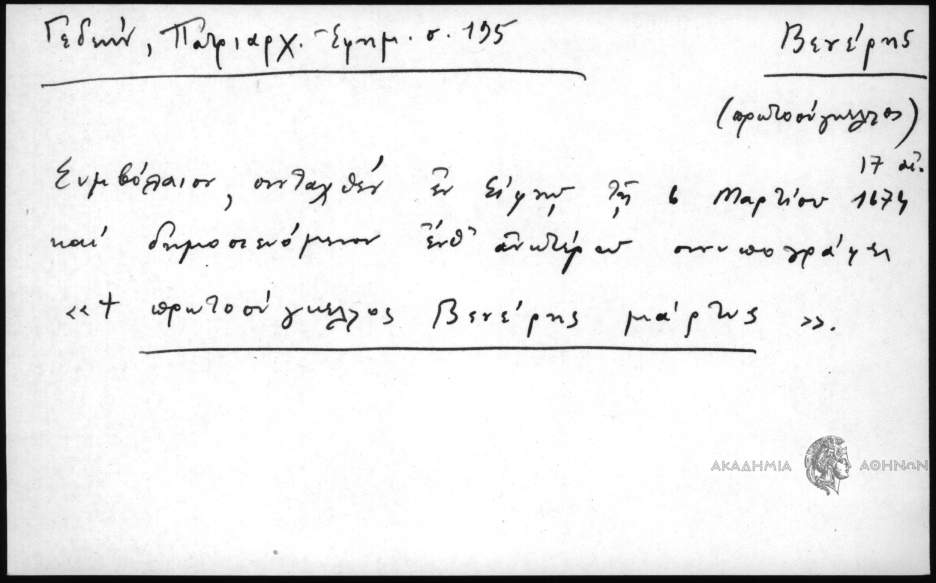 Γεδεών, Πατριαρχ. Ἐφημ. σ. 195
Βενέρης
(πρωτοσύγκελλος)
17 αἰ.
Συμβόλαιον, συνταχθέν ἐν Σίφνῳ τῇ 6 Μαρτίου 1674
καί δημοσιευόμενον ἔνθ' ἀνωτέρω συνυπογράφει
«+ πρωτοσύγκελλος Βενέρης μάρτυς».
ΑΚΑΔΗΜΙΑ ΑΘΗΝΩΝ